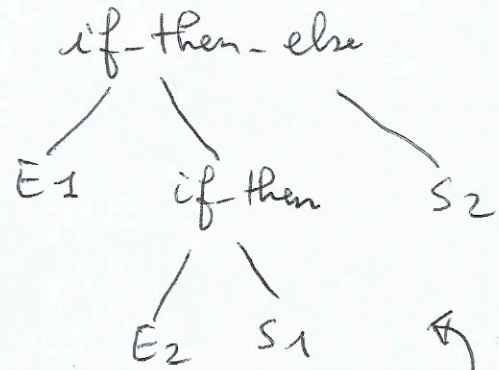 if-then-else
E1 if-then S2
E2 S1